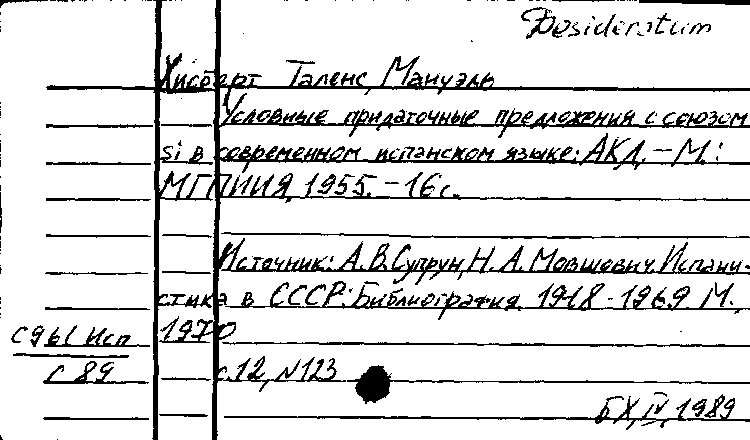 Desideratum
Хисберт Таленс, Мануэль
Условные придаточные предложения с союзом
si в современном испанском языке: АКД. – М.:
МГПИИЯ, 1955. – 16 с.
Источник: А.В. Супрун, Н.А. Мовшович. Испани-
стика в СССР: Библиография. 1918-1969 М.,
С961 Исп 1970
С 89 с.12, N123
БХ, IV, 1989